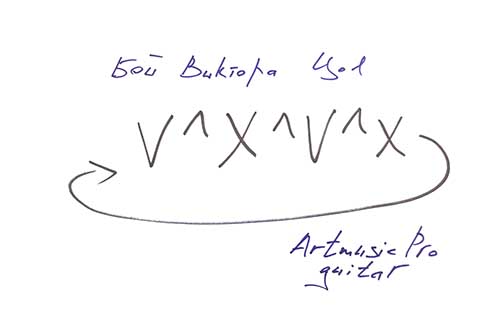 Бой Виктора Цоя
V ^ X ^ V ^ X
Artmusic Pro
guitar